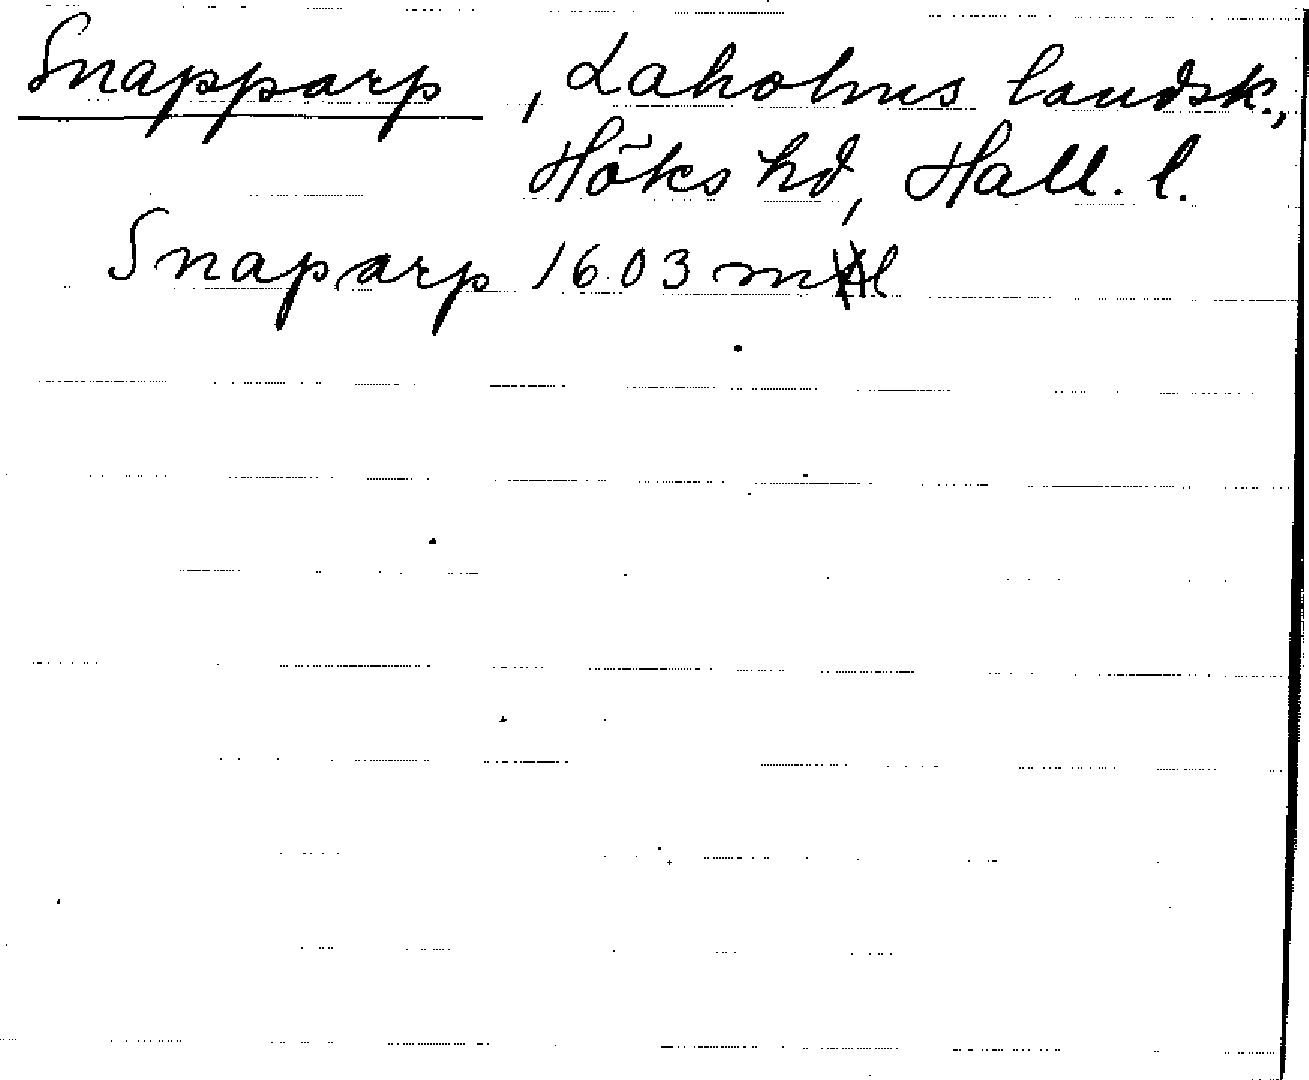 Snapparp, Laholms landsk.,
Höks hd, Hall. l.
Snaparp 1603